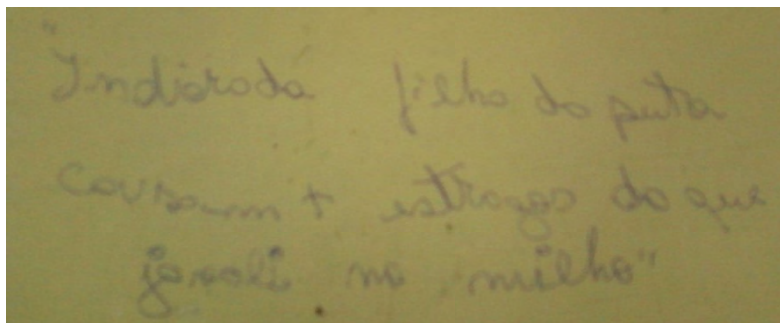 "Indiarada filho da puta
causam + estragos do que
javali no milho"